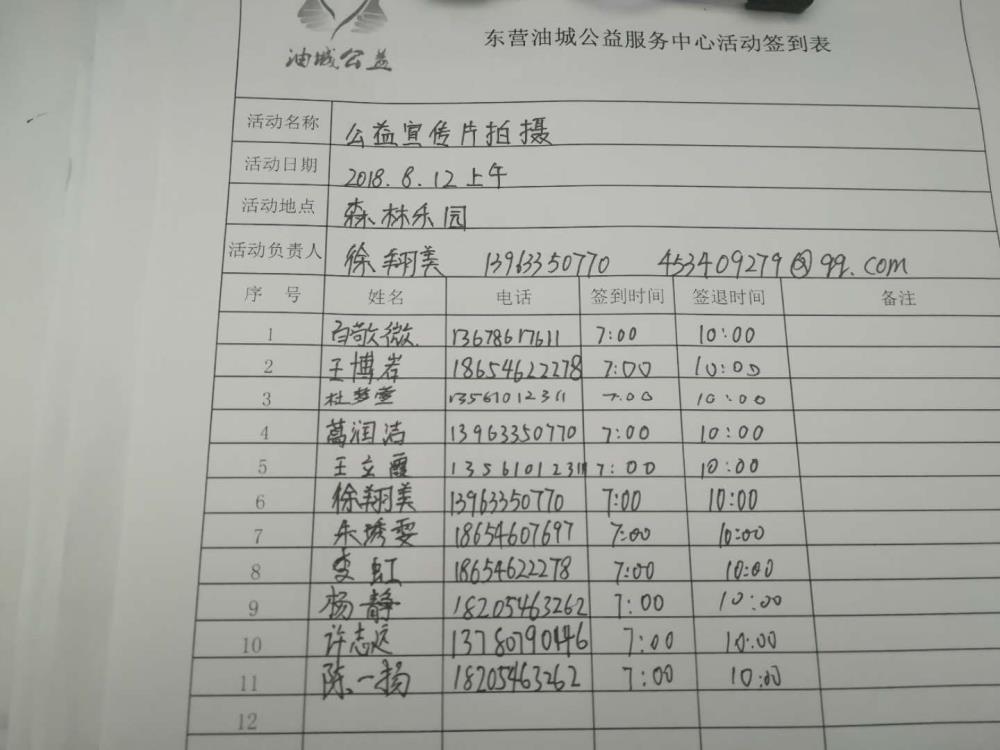 油城公益
东营油城公益服务中心活动签到表
活动名称 公益宣传片拍摄
活动日期 2018.8.12上午
活动地点 森林乐园
活动负责人 徐翔美 13963350770 453409279@qq.com
序 号 姓名 电话 签到时间 签退时间 备注
1 百敬微 13678617611 7:00 10:00
2 王博岩 18654622278 7:00 10:00
3 杜梦萱 13561012311 7:00 10:00
4 葛润洁 13963350770 7:00 10:00
5 王立霞 13561012311 7:00 10:00
6 徐翔美 13963350770 7:00 10:00
7 朱琇雯 18654607697 7:00 10:00
8 李虹 18654622278 7:00 10:00
9 杨静 18205463262 7:00 10:00
10 许志廷 13780790446 7:00 10:00
11 陈一扬 18205463262 7:00 10:00
12